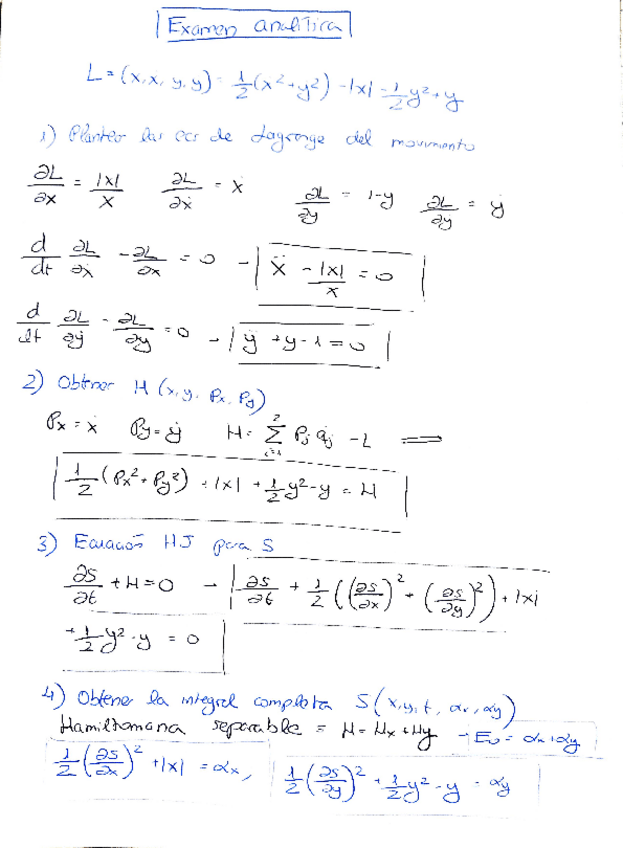 Examen analítica
L = (x, ẋ, y, ẏ) = 1/2 (ẋ² + ẏ²) - |x| - 1/2 y² + y
1) Plantear las ecs de Lagrange del movimiento
∂L/∂x = |x|/x   ∂L/∂ẋ = ẋ   ∂L/∂y = 1-y   ∂L/∂ẏ = ẏ
d/dt ∂L/∂ẋ - ∂L/∂x = 0 → ẍ - |x|/x = 0
d/dt ∂L/∂ẏ - ∂L/∂y = 0 → ÿ + y - 1 = 0
2) Obtener H (x, y, Px, Py)
Px = ẋ   Py = ẏ   H = Σ Pj q̇j - L ⟹
1/2 (Px² + Py²) + |x| + 1/2 y² - y = H
3) Ecuación HJ para S
∂S/∂t + H = 0 → ∂S/∂t + 1/2 ((∂S/∂x)² + (∂S/∂y)²) + |x|
+ 1/2 y² - y = 0
4) Obtener la integral completa S (x, y, t, αx, αy)
Hamiltoniana separable = H = Hx + Hy → E0 = αx + αy
1/2 (∂S/∂x)² + |x| = αx,   1/2 (∂S/∂y)² + 1/2 y² - y = αy